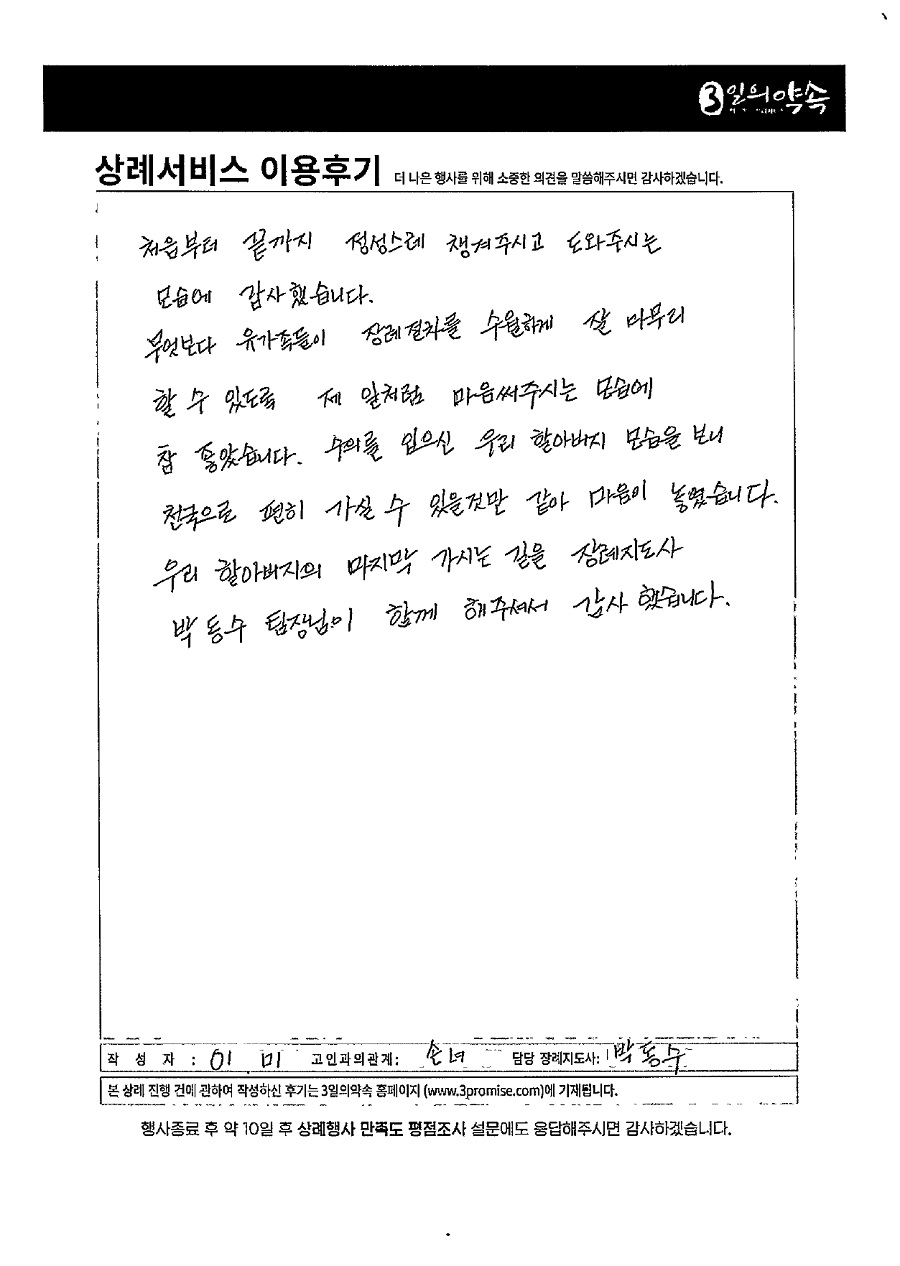 3일의약속
상례서비스 이용후기 더 나은 행사를 위해 소중한 의견을 말씀해주시면 감사하겠습니다.
처음부터 끝까지 정성스레 챙겨주시고 도와주시는
모습에 감사했습니다.
무엇보다 유가족들이 장례절차를 수월하게 잘 마무리
할 수 있도록 제 일처럼 마음써주시는 모습에
참 좋았습니다. 수의를 입으신 우리 할아버지 모습을 보니
천국으로 편히 가실 수 있을것만 같아 마음이 놓였습니다.
우리 할아버지의 마지막 가시는 길을 장례지도사
박동수 팀장님이 함께 해주셔서 감사했습니다.
작 성 자 : 이 미 고인과의관계: 손녀 담당 장례지도사: 박동수
본 상례 진행 건에 관하여 작성하신 후기는 3일의약속 홈페이지 (www.3promise.com)에 기재됩니다.
행사종료 후 약 10일 후 상례행사 만족도 평점조사 설문에도 응답해주시면 감사하겠습니다.